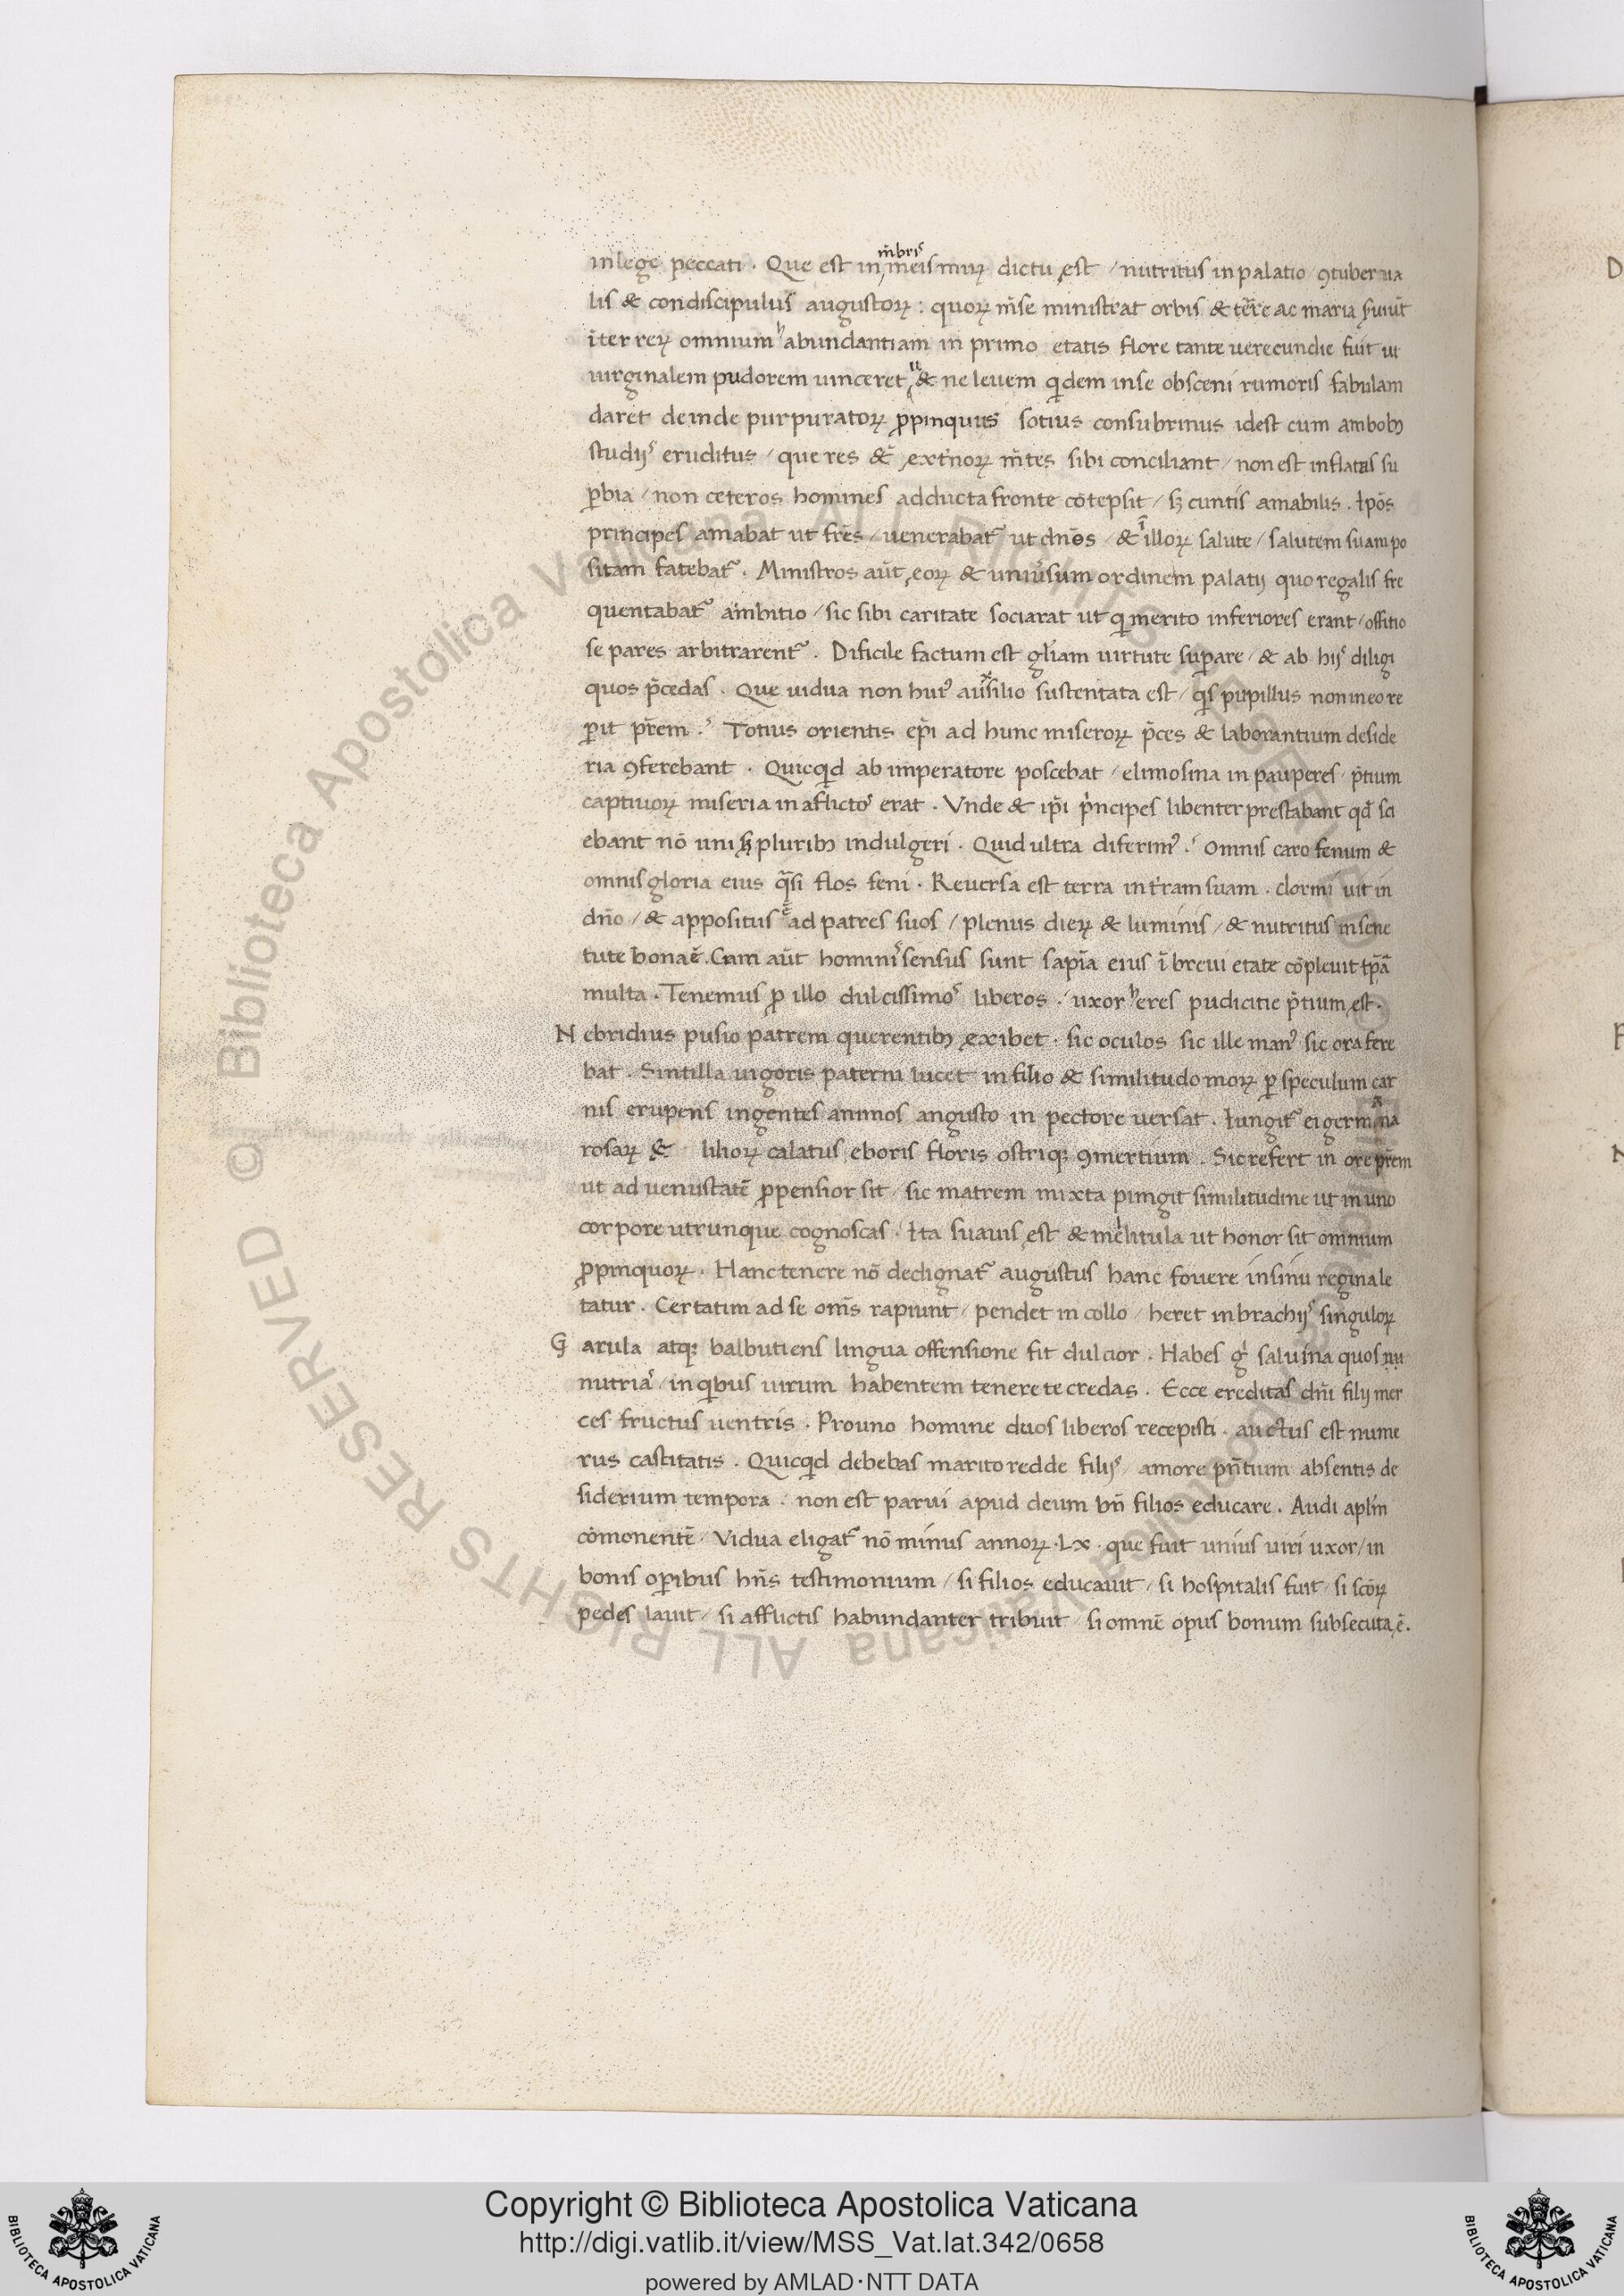 in lege peccati. Que est in m̄bris meis miꝝ dictu est / nutritus in palatio ꝯtuberna
lis & condiscipulus augustoꝝ: quoꝝ m̄se ministrat orbis & tērē ac maria
īter reꝝ omnium abundantiam in primo etatis flore tante uerecundie fuit ut
uirginalem pudorem uinceret & ne leuem qͥdem in se obsceni rumoris fabulam
daret deinde purpuratoꝝ ꝓpinquus sotius consubrinus idest cum ambobꝫ
studijs eruditus / que res & ext̄noꝝ m̄tes sibi conciliant / non est inflatus su
ꝑbia / non ceteros homines adducta fronte cōtepsit / sꝫ cuntis amabilis. Ipōs
principes amabat ut fr̄es / uenerabat̄ ut dn̄os / & ī illoꝝ salute / salutem suam po
sitam fatebat̄. Ministros aūt eoꝝ & uniūsum ordinem palatij quo regalis fre
quentabat̄ ambitio / sic sibi caritate sociarat ut qͥ merito inferiores erant / offitio
se pares arbitrarent̄. Dificile factum est gl̄iam uirtute suꝑare / & ab hijs diligi
quos p̄cedas. Que uidua non huiꝰ auxilio sustentata est / qͥs pupillus non in eo re
ꝑit pr̄em. Totius orientis ep̄i ad hunc miseroꝝ p̄ces & laborantium deside
ria ꝯferebant. Quicqͥd ab imperatore poscebat / elimosina in pauperes / p̄tium
captiuoꝝ miseria in aflictos erat. Vnde & ip̄i pͥncipes libenter prestabant qd̄ sci
ebant nō uni sꝫ pluribꝫ indulgeri. Quid ultra diferimꝰ. Omnis caro fenum &
omnis gloria eius qͣsi flos feni. Reuersa est terra in t̄ram suam. dormiuit in
dn̄o / & appositus ē ad patres suos / plenus dieꝝ & luminis / & nutritus in sene
tute bona. Cam aūt hominis sensus sunt sapīa eius ī breui etate cōpleuit tp̄ā
multa. Tenemus ꝓ illo dulcissimos liberos. uxor heres pudicitie p̄tium est.
Nebridius pusio patrem querentibꝫ exibet. sic oculos sic ille manꝰ sic ora fere
bat. Sintilla uigoris paterni lucet in filio & similitudo moꝝ ꝑ speculum car
nis erupens ingentes animos angusto in pectore uersat. Iungit̄ ei germana
rosaꝝ & lilioꝝ calatus eboris floris ostriqꝫ ꝯmertium. Sic refert in ore pr̄em
ut ad uenustatē ꝓpensior sit / sic matrem mixta pimgit similitudine ut in uno
corpore utrunque cognoscas. Ita suauis est & melitula ut honor sit omnium
ꝓpinquoꝝ. Hanc tenere nō dedignat̄ augustus hanc fouere in sinu regina le
tatur. Certatim ad se om̄s rapiunt / pendet in collo / heret in brachijs singuloꝝ
Garula atqꝫ balbutiens lingua offensione fit dulcior. Habes gͥ saluina quos nu
nutrias / in qͥbus uirum habentem tenere te credas. Ecce ereditas dn̄i filij mer
ces fructus uentris. Pro uno homine duos liberos recepisti. auctus est nume
rus castitatis. Quicqͥd debebas marito redde filijs / amore pn̄tium absentis de
siderium tempora. non est parui apud deum bn̄ filios educare. Audi apl̄m
cōmonentē. Vidua eligat̄ nō minus annoꝝ .Lx. que fuit unius uiri uxor / in
bonis oꝑibus hn̄s testimonium / si filios educauit / si hospitalis fuit / si sc̄oꝝ
pedes lauit / si afflictis habundanter tribuit / si omnē opus bonum subsecuta ē.
© Biblioteca Apostolica Vaticana ALL RIGHTS RESERVED
Copyright © Biblioteca Apostolica Vaticana
http://digi.vatlib.it/view/MSS_Vat.lat.342/0658
powered by AMLAD·NTT DATA
BIBLIOTECA APOSTOLICA VATICANA
BIBLIOTECA APOSTOLICA VATICANA